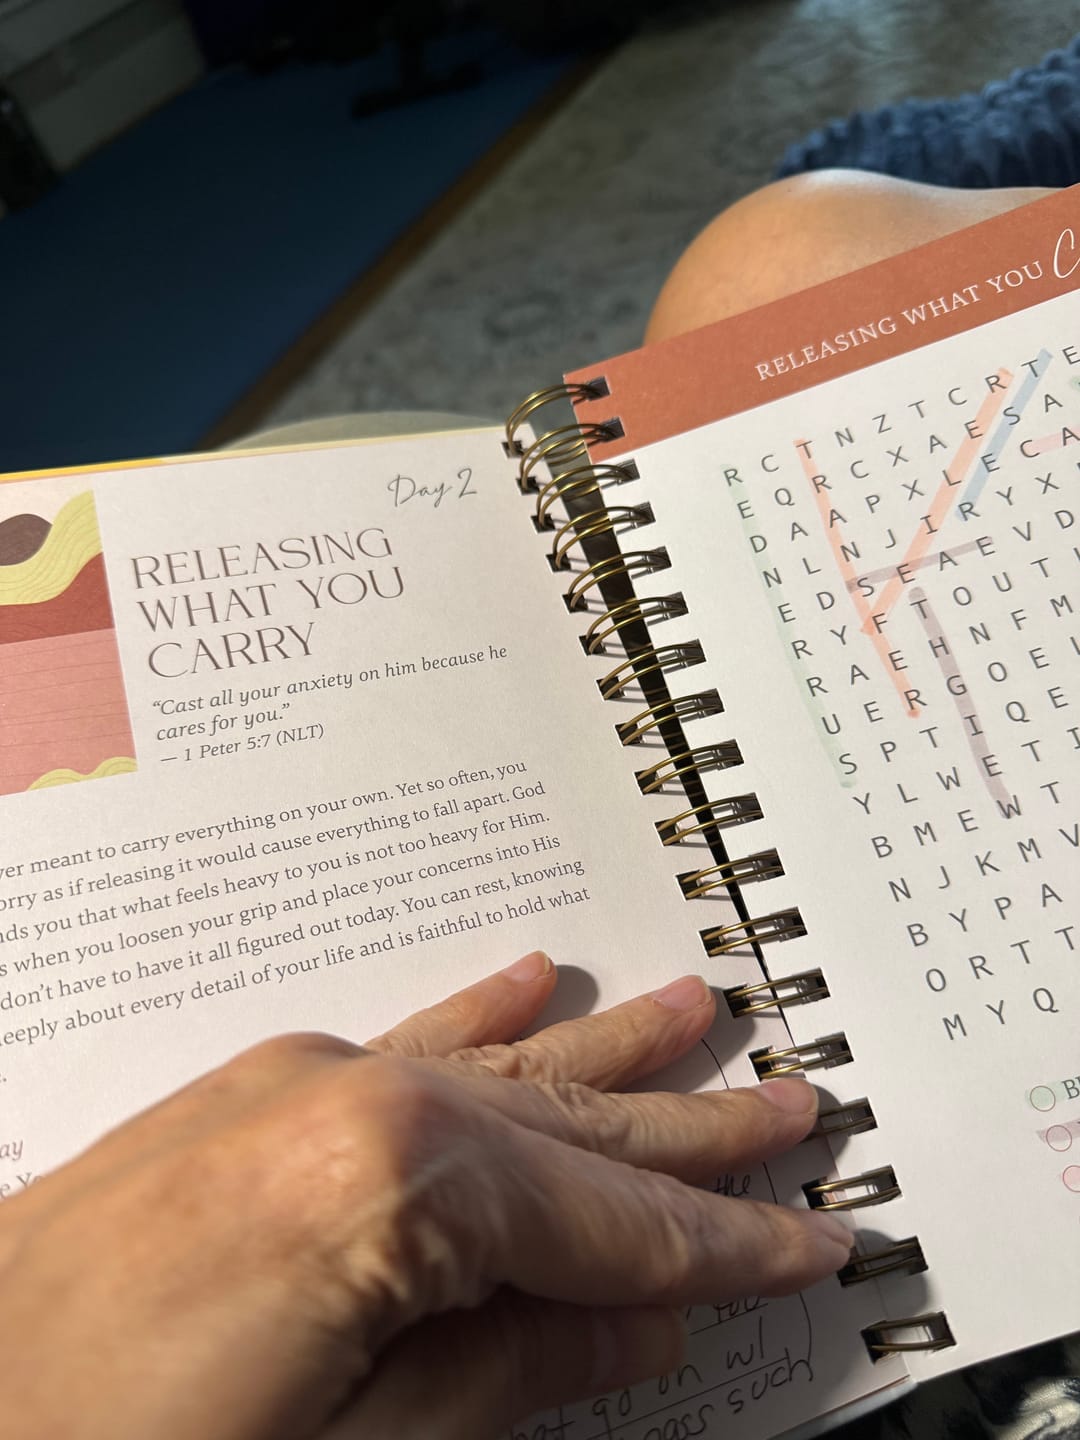 Day 2
RELEASING
WHAT YOU
CARRY
“Cast all your anxiety on him because he
cares for you.”
— 1 Peter 5:7 (NLT)
meant to carry everything on your own. Yet so often, you
as if releasing it would cause everything to fall apart. God
you that what feels heavy to you is not too heavy for Him.
when you loosen your grip and place your concerns into His
don’t have to have it all figured out today. You can rest, knowing
about every detail of your life and is faithful to hold what
the
go on
such
RELEASING WHAT YOU
R C T N Z T C R T E
E Q R C X A E S A
D A A P X L E C A
N L N J I R Y X
E D S E A E V D
R Y F T O U T
R A E H N F M
U E R G O E
S P T I Q E
Y L W E T
B M E W T
N J K M V
B Y P A
O R T T
M Y Q